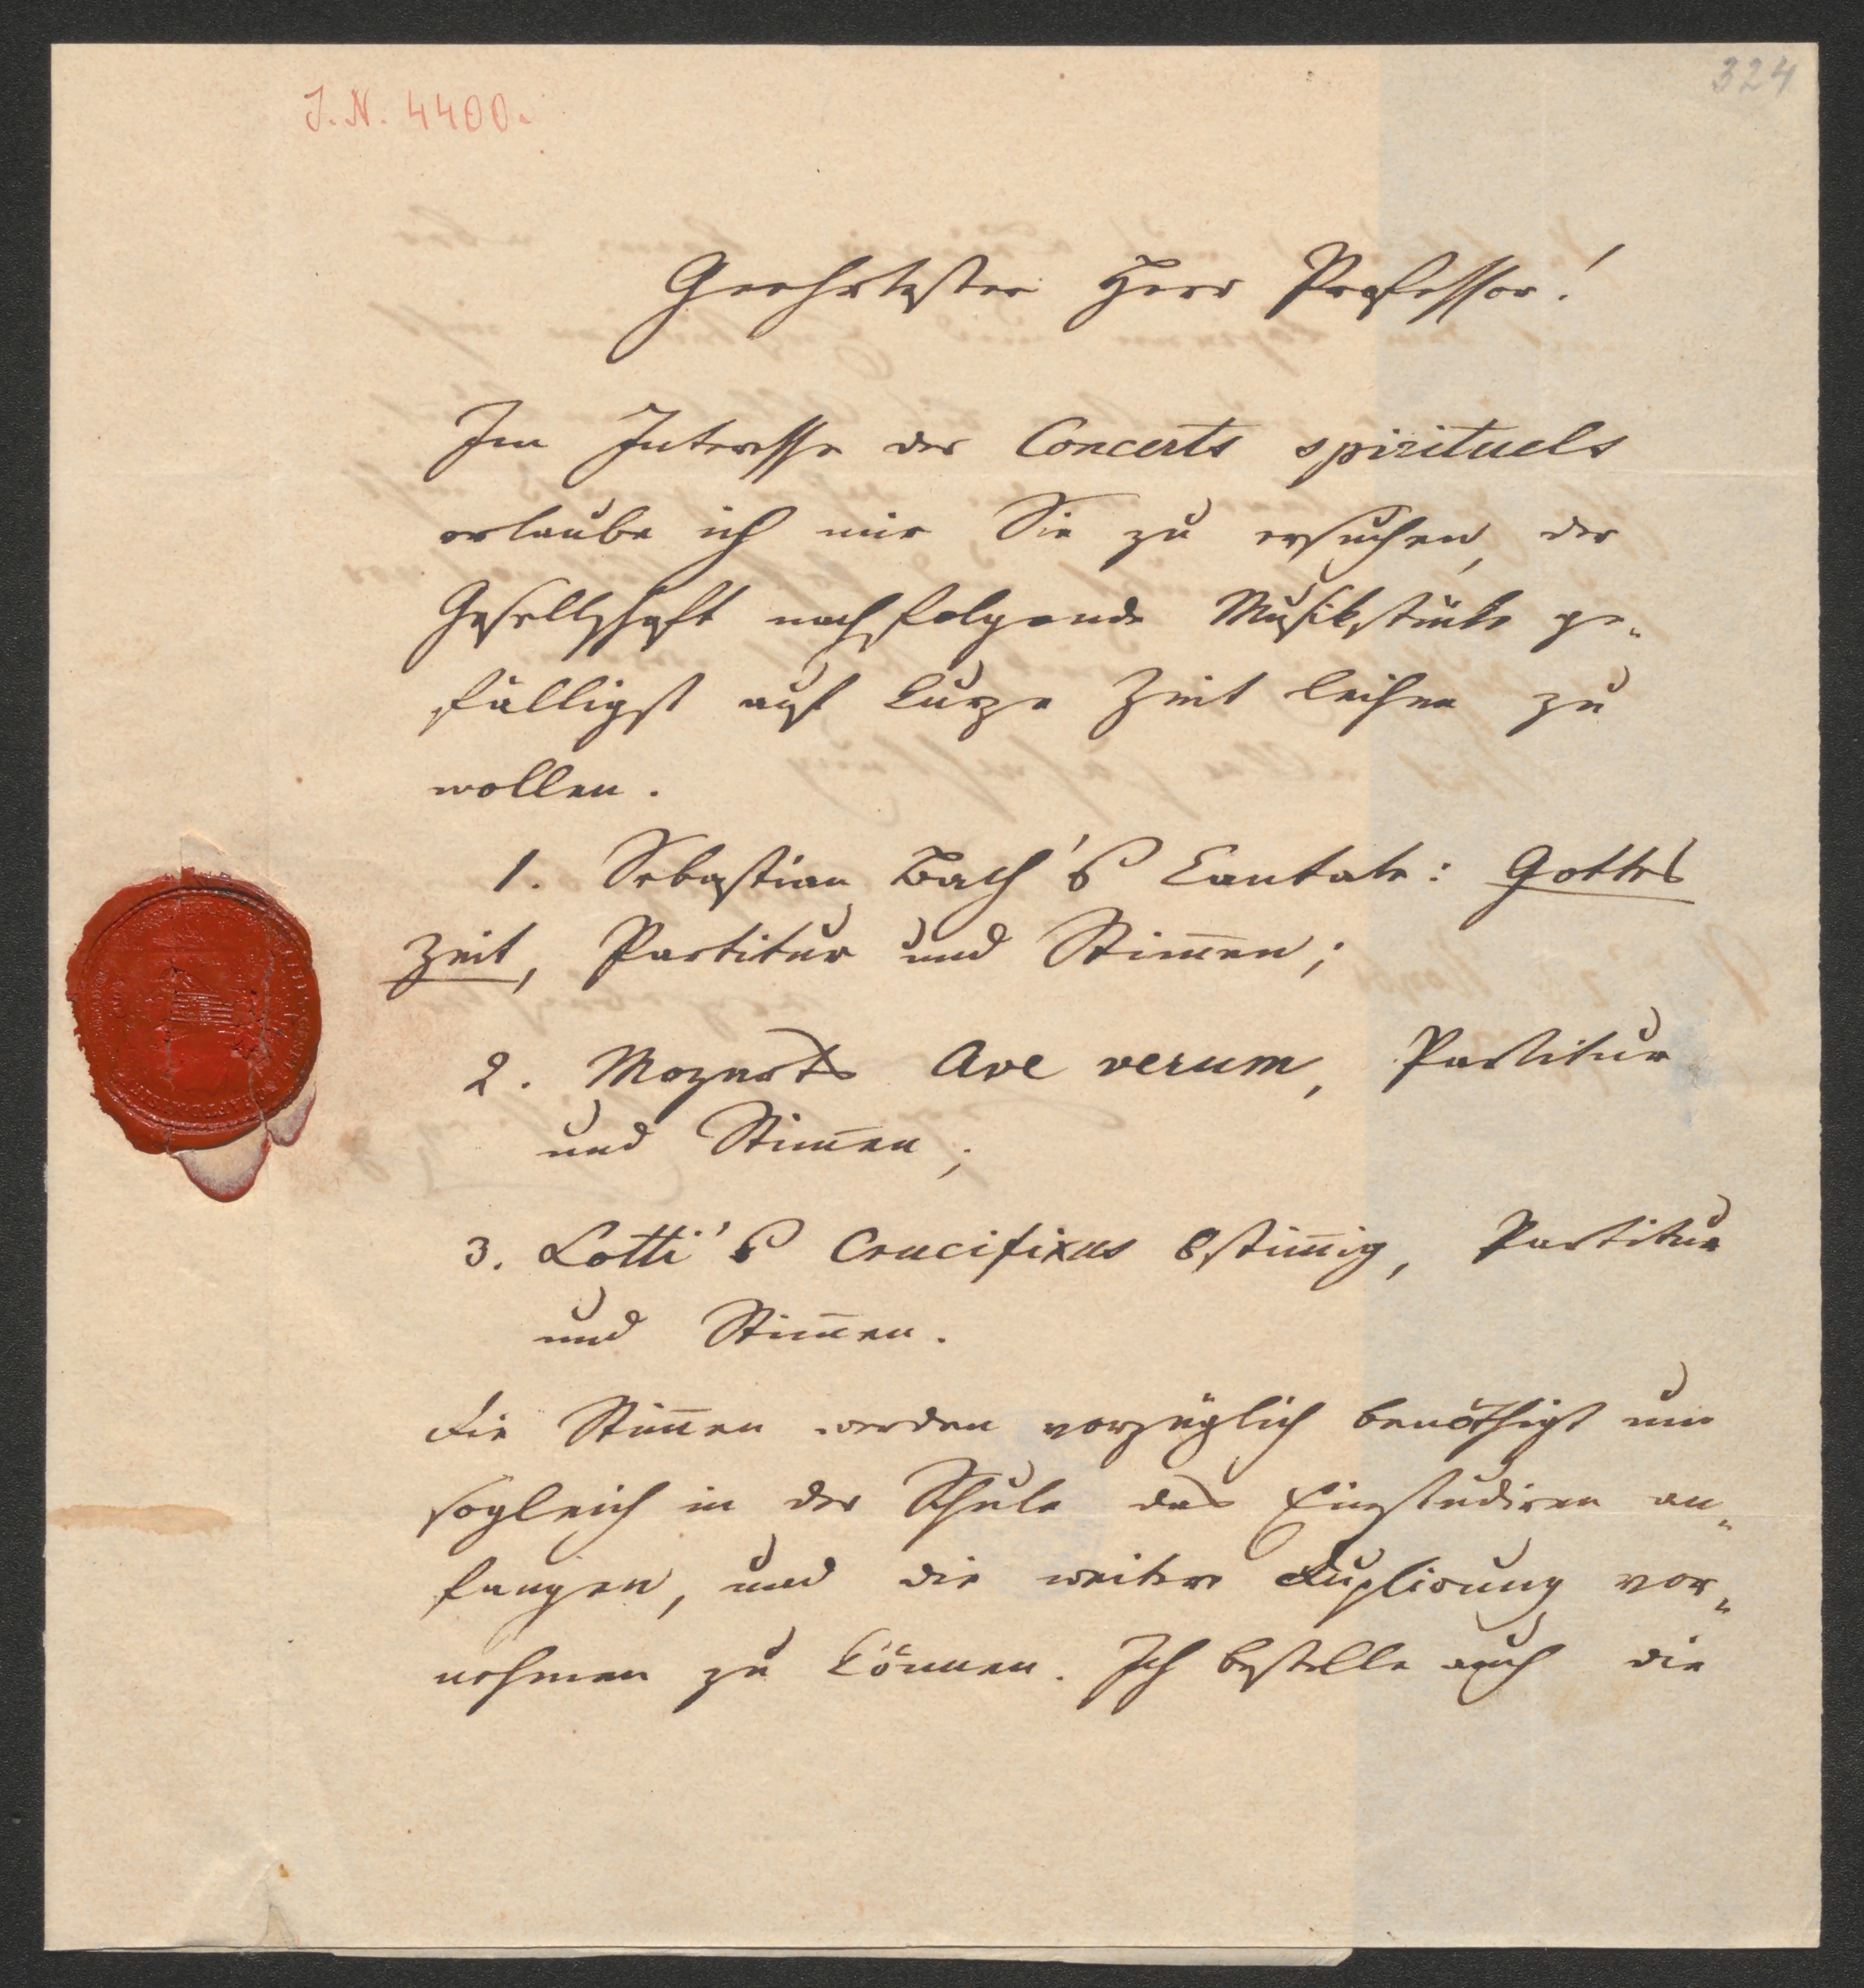 J. N. 4400.
324
Geehrtester Herr Professor!
Im Interesse der Concerts spirituels
erlaube ich mir Sie zu ersuchen, der
Gesellschaft nachfolgende Musikstücke ge-
fälligst auf kurze Zeit leihen zu
wollen.
1. Sebastian Bach's Cantate: Gottes
Zeit, Partitur und Stim̅en;
2. Mozarts Ave verum, Partitur
und Stim̅en;
3. Lotti's Crucifixus 8stim̅ig, Partitur
und Stim̅en.
Die Stim̅en werden vorzüglich benöthigt um
sogleich in der Schule das Einstudiren an-
fangen, und die weitere Duplirung vor-
nehmen zu können. Ich bestelle auch die